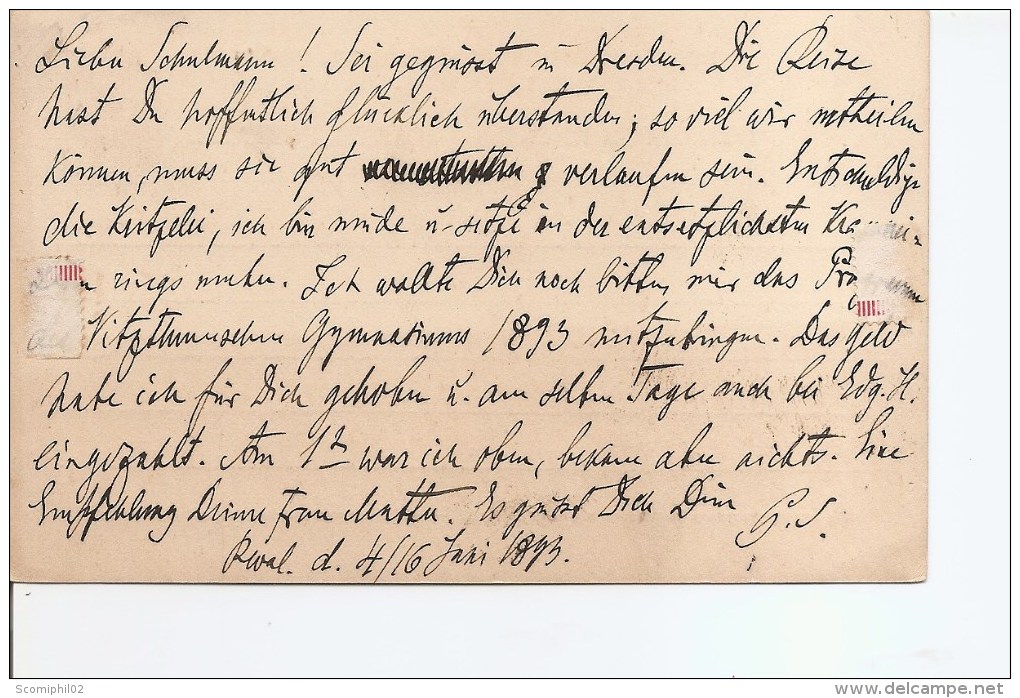 Lieber Schulmann! Sei gegrüsst in Dresden. Die Reise
hast Du hoffentlich glücklich überstanden; so viel wir urtheilen
können, muss sie gut verlaufen sein. Entschuldige
die Kritzelei, ich bin müde u. sitze in der entsetzlichsten
rings umher. Ich wollte Dich noch bitten, mir das Programm
des Vitzthumschen Gymnasiums 1893 mitzubringen. Das Geld
habe ich für Dich gehoben u. am selben Tage auch bei Edg. H.
eingezahlt. Am 1t war ich oben, bekam aber nichts. Eine
Empfehlung Deiner Frau Mutter. Es grüsst Dich Dein
G. S.
Reval. d. 4/16 Juni 1893.
Scomiphil02
www.delcampe.net